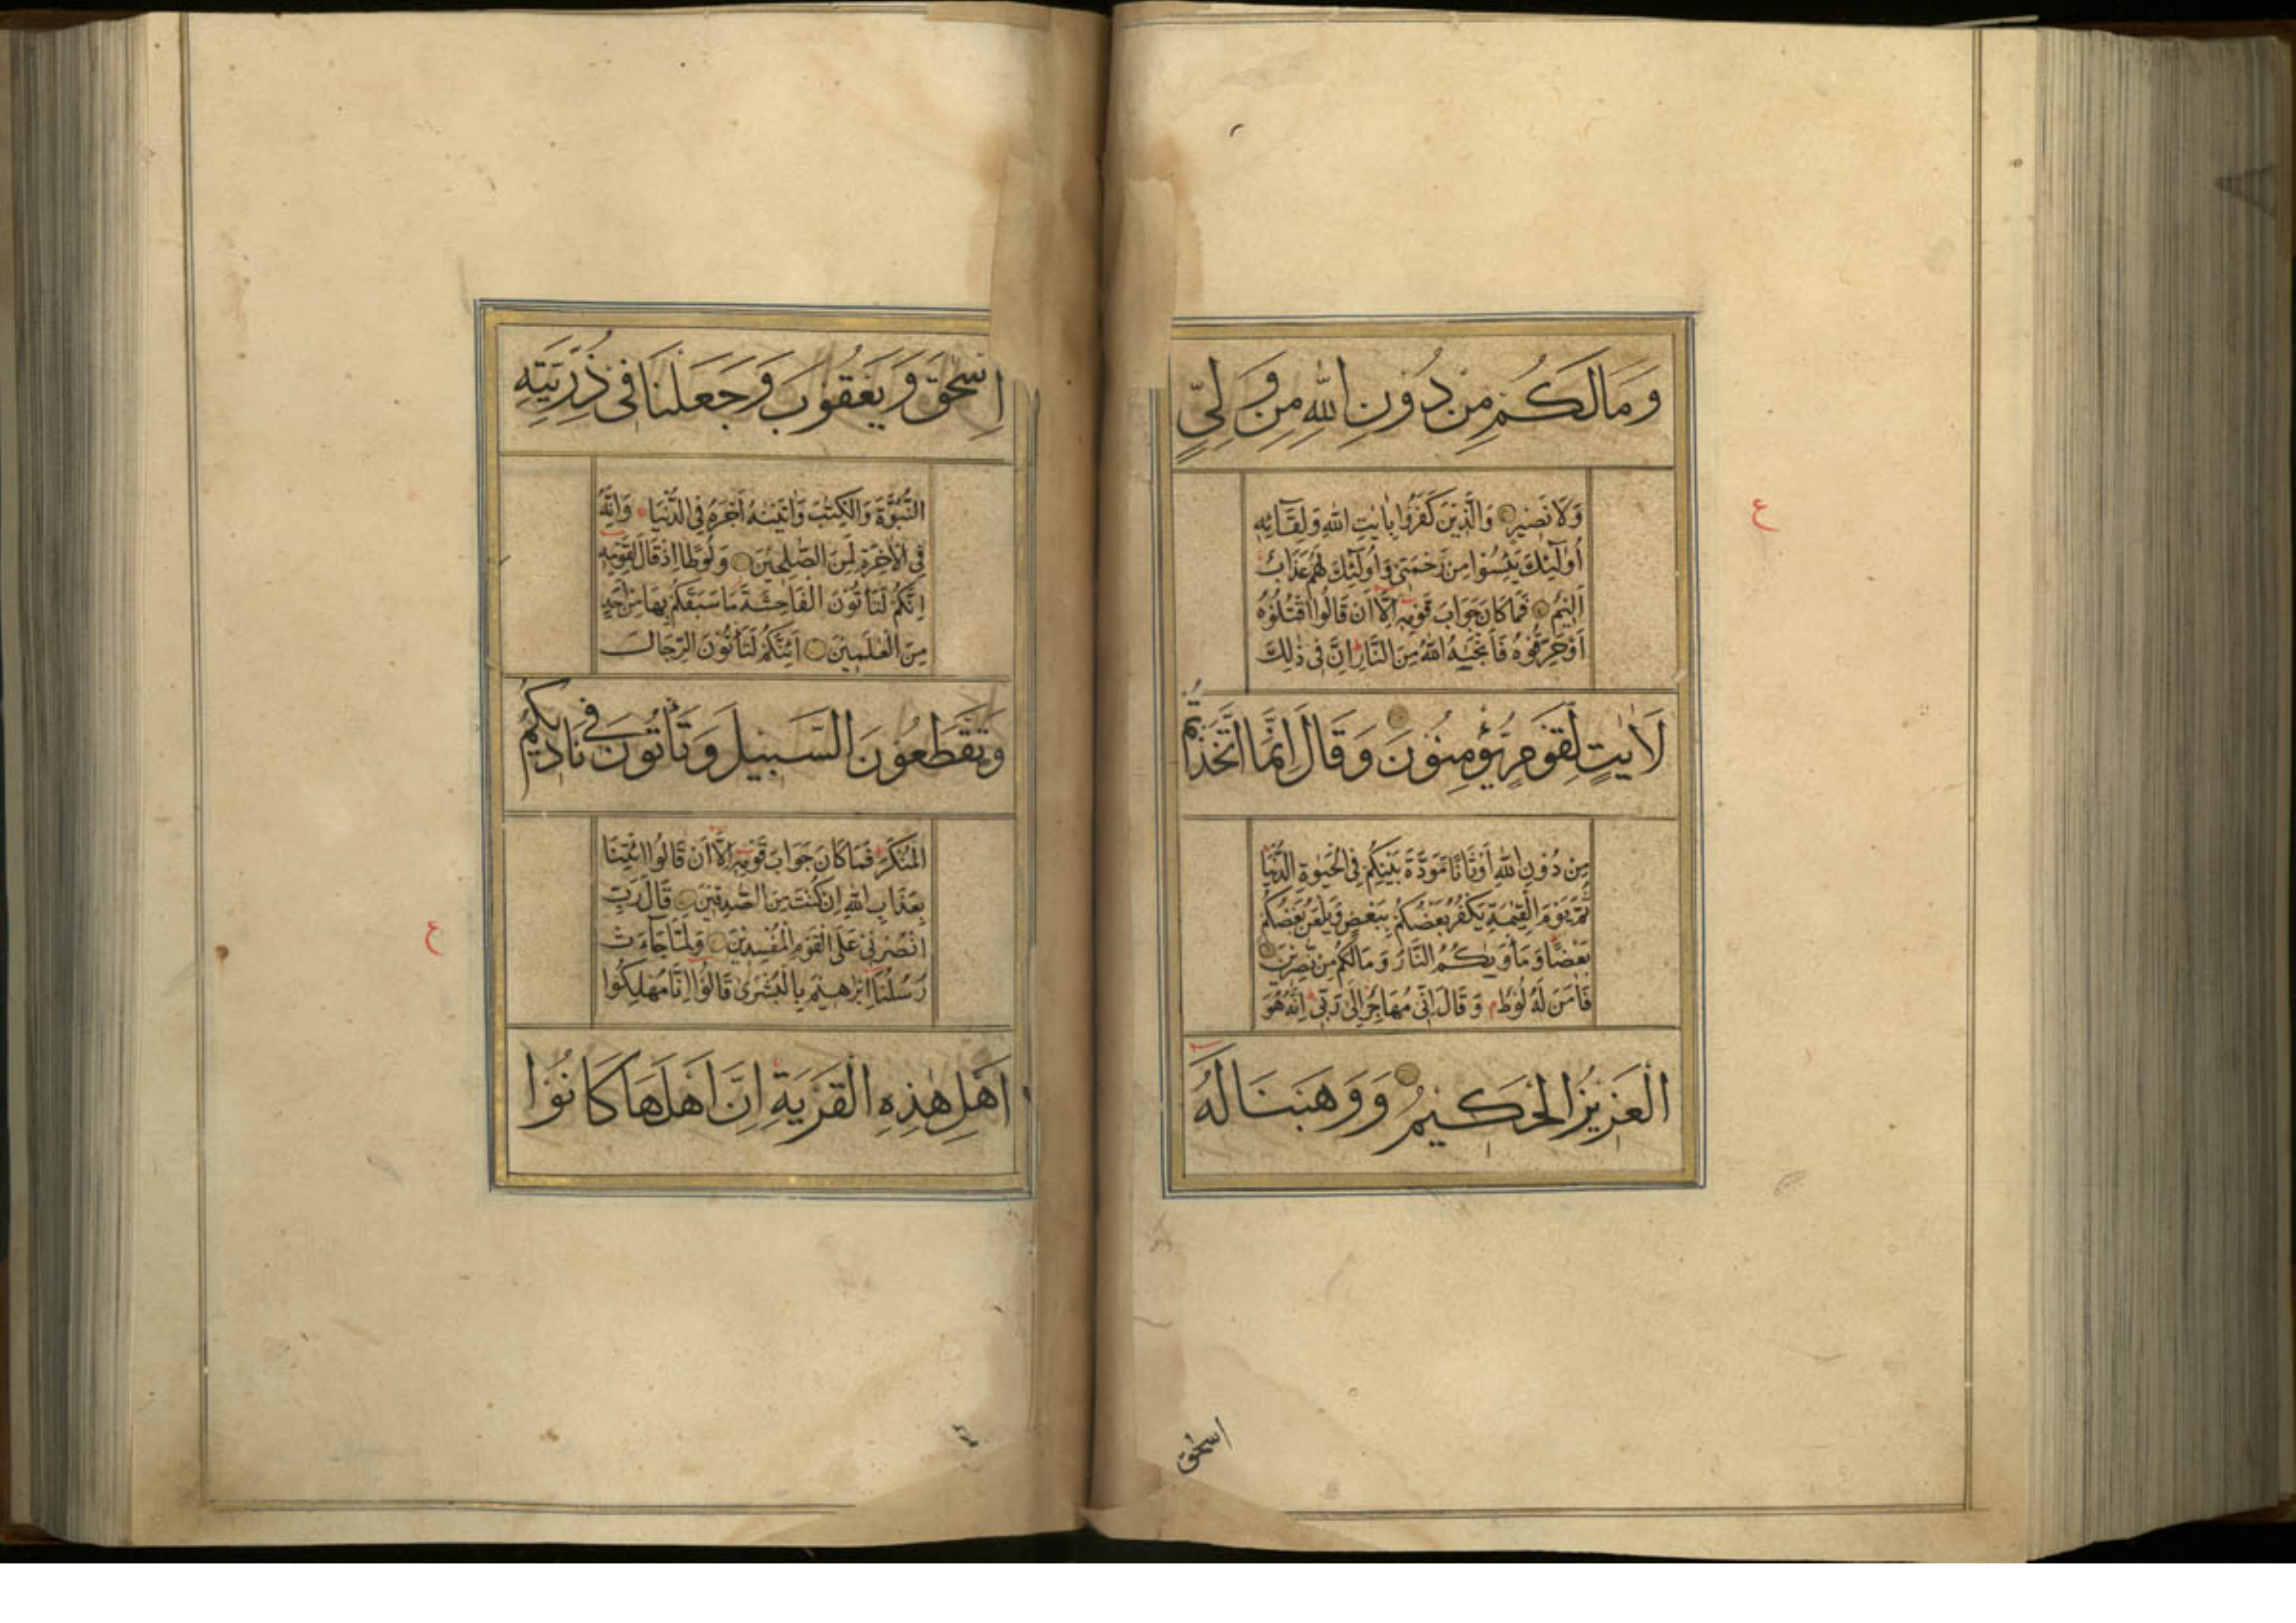 وَمَالَكُمْ مِنْ دُوْنِ اللّٰهِ مِنْ وَّلِیٍّ
وَلَا نَصِیْرٍ وَالَّذِیْنَ كَفَرُوْا بِاٰیٰتِ اللّٰهِ وَلِقَآئِهٖ
اُولٰٓئِكَ یَئِسُوْا مِنْ رَّحْمَتِیْ وَاُولٰٓئِكَ لَهُمْ عَذَابٌ
اَلِیْمٌ فَمَا كَانَ جَوَابَ قَوْمِهٖ اِلَّا اَنْ قَالُوا اقْتُلُوْهُ
اَوْ حَرِّقُوْهُ فَاَنْجٰىهُ اللّٰهُ مِنَ النَّارِ اِنَّ فِیْ ذٰلِكَ
لَاٰیٰتٍ لِّقَوْمٍ یُّؤْمِنُوْنَ وَقَالَ اِنَّمَا اتَّخَذْتُمْ
مِنْ دُوْنِ اللّٰهِ اَوْثَانًا مَّوَدَّةَ بَیْنِكُمْ فِی الْحَیٰوةِ الدُّنْیَا
ثُمَّ یَوْمَ الْقِیٰمَةِ یَكْفُرُ بَعْضُكُمْ بِبَعْضٍ وَّیَلْعَنُ بَعْضُكُمْ
بَعْضًا وَمَأْوٰىكُمُ النَّارُ وَمَا لَكُمْ مِنْ نّٰصِرِیْنَ
فَاٰمَنَ لَهٗ لُوْطٌ م وَقَالَ اِنِّیْ مُهَاجِرٌ اِلٰی رَبِّیْ اِنَّهٗ هُوَ
الْعَزِیْزُ الْحَكِیْمُ وَوَهَبْنَا لَهٗ
ع
اسحٰق
اِسْحٰقَ وَیَعْقُوْبَ وَجَعَلْنَا فِیْ ذُرِّیَّتِهِ
النُّبُوَّةَ وَالْكِتٰبَ وَاٰتَیْنٰهُ اَجْرَهٗ فِی الدُّنْیَا وَاِنَّهٗ
فِی الْاٰخِرَةِ لَمِنَ الصّٰلِحِیْنَ وَلُوْطًا اِذْ قَالَ لِقَوْمِهٖ
اِنَّكُمْ لَتَأْتُوْنَ الْفَاحِشَةَ مَا سَبَقَكُمْ بِهَا مِنْ اَحَدٍ
مِنَ الْعٰلَمِیْنَ اَئِنَّكُمْ لَتَأْتُوْنَ الرِّجَالَ
وَتَقْطَعُوْنَ السَّبِیْلَ وَتَأْتُوْنَ فِیْ نَادِیْكُمُ
الْمُنْكَرَ فَمَا كَانَ جَوَابَ قَوْمِهٖ اِلَّا اَنْ قَالُوا ائْتِنَا
بِعَذَابِ اللّٰهِ اِنْ كُنْتَ مِنَ الصّٰدِقِیْنَ قَالَ رَبِّ
انْصُرْنِیْ عَلَی الْقَوْمِ الْمُفْسِدِیْنَ وَلَمَّا جَآءَتْ
رُسُلُنَا اِبْرٰهِیْمَ بِالْبُشْرٰی قَالُوْا اِنَّا مُهْلِكُوْا
اَهْلِ هٰذِهِ الْقَرْیَةِ اِنَّ اَهْلَهَا كَانُوْا
ع